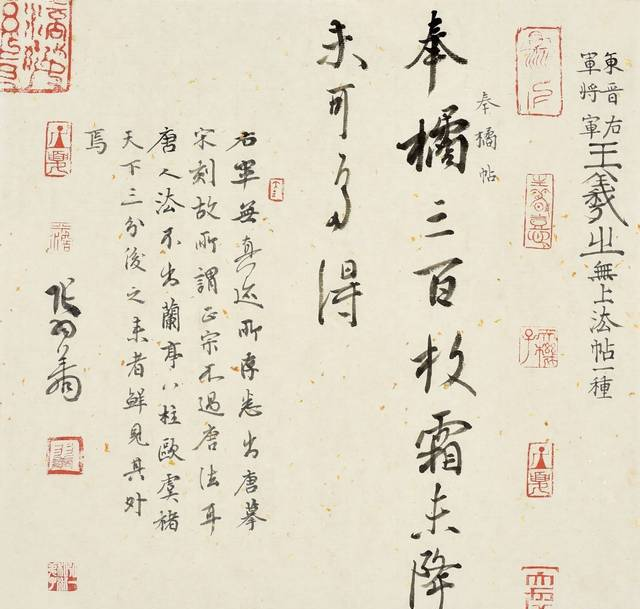 東晋右
軍将軍
王羲之無上法帖一種
奉橘帖
奉橘三百枚霜未降
未可多得
右軍無真迹所存悉出唐摹
宋刻故所謂正宗不過唐法耳
唐人法不出蘭亭八柱歐虞褚
天下三分後之来者鮮見其外
焉